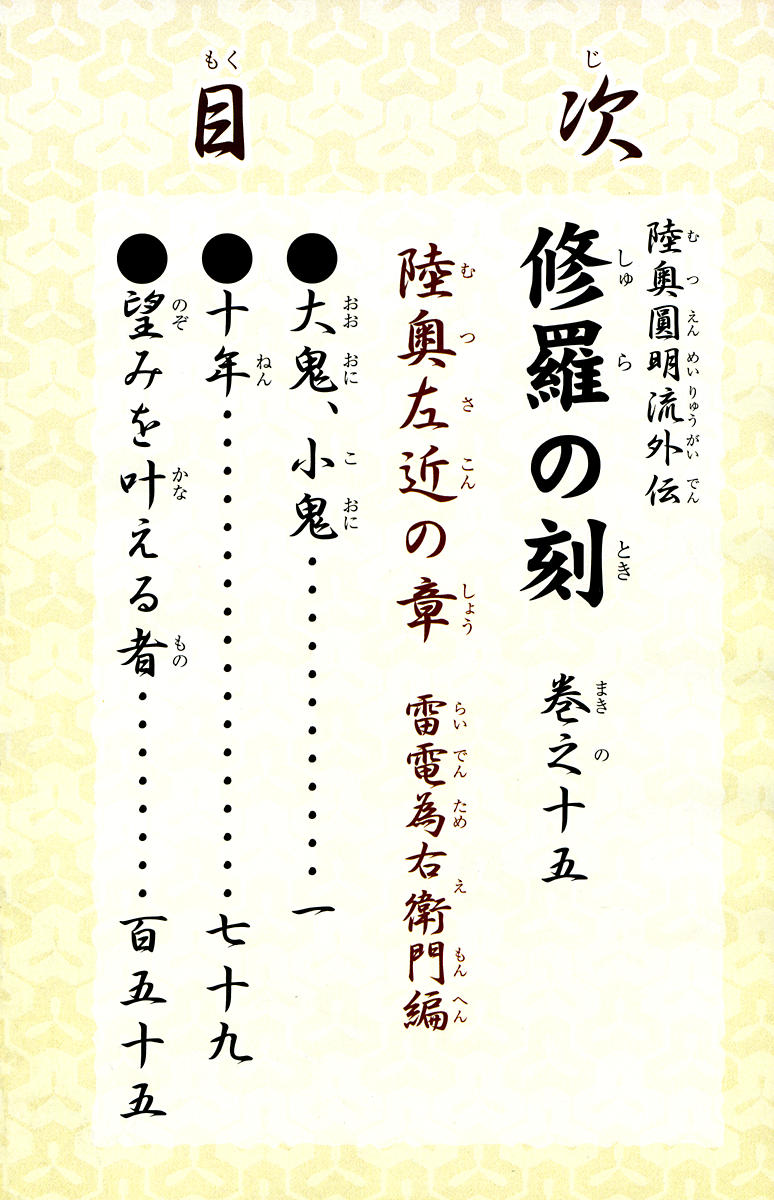 目次
陸奥圓明流外伝
修羅の刻 巻之十五
陸奥左近の章 雷電為右衛門編
●大鬼、小鬼・・・・・・・・・・・・一
●十年・・・・・・・・・・・・・・・・・・七十九
●望みを叶える者・・・・・・・・百五十五